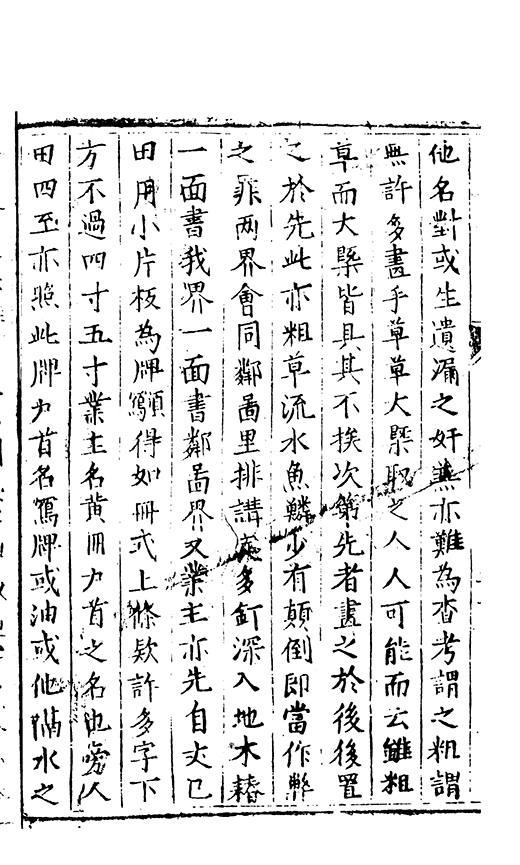 他名對或生遺漏之奸兼亦難為查考謂之粗謂
無許多畫乎草草大槩取之人人可能而云雖粗
草而大槩皆具其不挨次第先者畫之於後後置
之於先此亦粗草流水魚鱗少有顛倒即當作弊
之罪两界會同鄰啚里排講處多釘深入地木樁
一面書我界一面書鄰啚界又業主亦先自丈己
田用小片板為牌寫得如冊式上條欵許多字下
方不過四寸五寸業主名黄冊户首之名也嘮人
田四至亦照此牌户首名寫牌或油或他隔水之